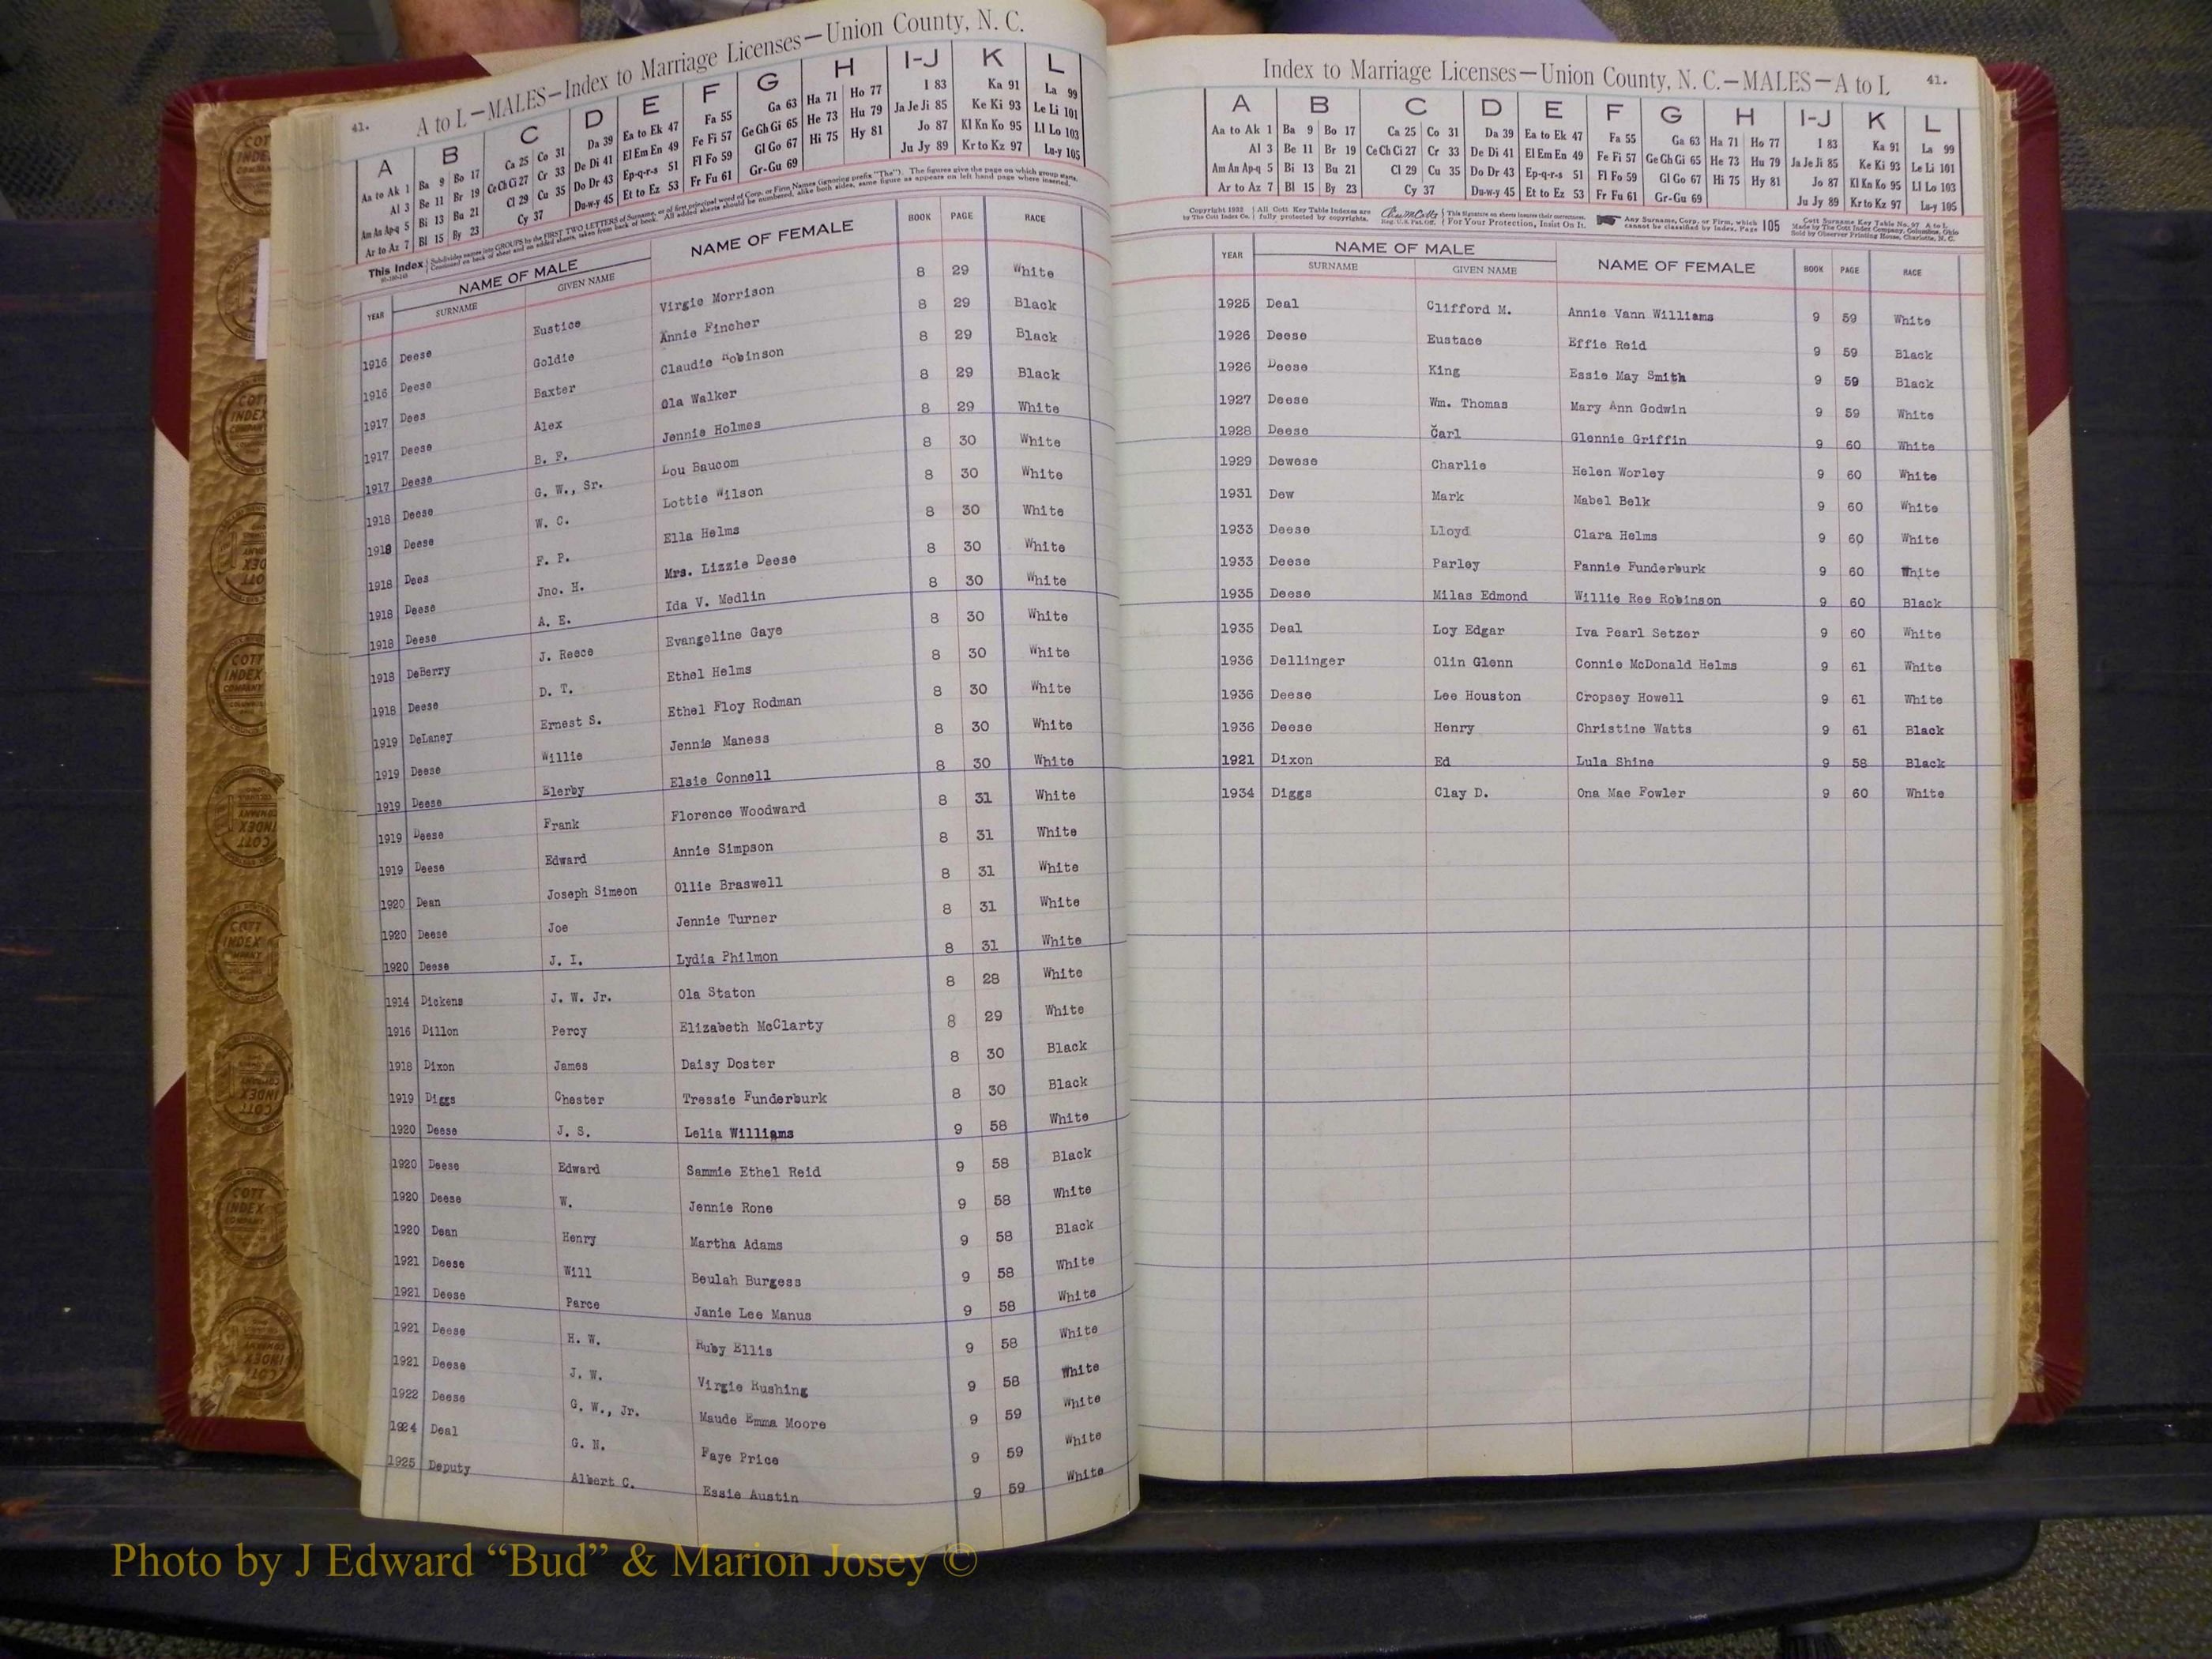 41. A to L—MALES—Index to Marriage Licenses—Union County, N. C.
A B C D E F G H I-J K L
Aa to Ak 1 Ba 9 Bo 17 Ca 25 Co 31 Da 39 Ea to Ek 47 Fa 55 Ga 63 Ha 71 Ho 77 I 83 Ka 91 La 99
Al 3 Be 11 Br 19 Ce Ch Ci 27 Cr 33 De Di 41 El Em En 49 Fe Fi 57 Ge Gh Gi 65 He 73 Hu 79 Ja Je Ji 85 Ke Ki 93 Le Li 101
Am An Ap-q 5 Bi 13 Bu 21 Cl 29 Cu 35 Do Dr 43 Ep-q-r-s 51 Fl Fo 59 Gl Go 67 Hi 75 Hy 81 Jo 87 Kl Kn Ko 95 Ll Lo 103
Ar to Az 7 Bl 15 By 23 Cy 37 Du-w-y 45 Et to Ez 53 Fr Fu 61 Gr-Gu 69 Ju Jy 89 Kr to Kz 97 Lu-y 105
This Index
YEAR NAME OF MALE NAME OF FEMALE BOOK PAGE RACE
SURNAME GIVEN NAME
1916 Deese Eustice Virgie Morrison 8 29 White
1916 Deese Goldie Annie Fincher 8 29 Black
1917 Dees Baxter Claudie Robinson 8 29 Black
1917 Deese Alex Ola Walker 8 29 Black
1917 Deese B. F. Jennie Holmes 8 29 White
1918 Deese G. W., Sr. Lou Baucom 8 30 White
1918 Deese W. C. Lottie Wilson 8 30 White
1918 Dees F. P. Ella Helms 8 30 White
1918 Deese Jno. H. Mrs. Lizzie Deese 8 30 White
1918 Deese A. E. Ida V. Medlin 8 30 White
1918 DeBerry J. Reece Evangeline Gaye 8 30 White
1918 Deese D. T. Ethel Helms 8 30 White
1919 DeLaney Ernest S. Ethel Floy Rodman 8 30 White
1919 Deese Willie Jennie Maness 8 30 White
1919 Deese Elerby Elsie Connell 8 30 White
1919 Deese Frank Florence Woodward 8 31 White
1919 Deese Edward Annie Simpson 8 31 White
1920 Dean Joseph Simeon Ollie Braswell 8 31 White
1920 Deese Joe Jennie Turner 8 31 White
1920 Deese J. I. Lydia Philmon 8 31 White
1914 Dickens J. W. Jr. Ola Staton 8 28 White
1916 Dillon Percy Elizabeth McClarty 8 29 White
1918 Dixon James Daisy Doster 8 30 Black
1919 Diggs Chester Tressie Funderburk 8 30 Black
1920 Deese J. S. Lelia Williams 9 58 White
1920 Deese Edward Sammie Ethel Reid 9 58 Black
1920 Deese W. Jennie Rone 9 58 White
1920 Dean Henry Martha Adams 9 58 Black
1921 Deese Will Beulah Burgess 9 58 White
1921 Deese Parce Janie Lee Manus 9 58 White
1921 Deese H. W. Ruby Ellis 9 58 White
1921 Deese J. W. Virgie Rushing 9 58 White
1922 Deese G. W., Jr. Maude Emma Moore 9 59 White
1924 Deal G. N. Faye Price 9 59 White
1925 Deputy Albert C. Essie Austin 9 59 White
Index to Marriage Licenses—Union County, N. C.—MALES—A to L 41.
A B C D E F G H I-J K L
Aa to Ak 1 Ba 9 Bo 17 Ca 25 Co 31 Da 39 Ea to Ek 47 Fa 55 Ga 63 Ha 71 Ho 77 I 83 Ka 91 La 99
Al 3 Be 11 Br 19 Ce Ch Ci 27 Cr 33 De Di 41 El Em En 49 Fe Fi 57 Ge Gh Gi 65 He 73 Hu 79 Ja Je Ji 85 Ke Ki 93 Le Li 101
Am An Ap-q 5 Bi 13 Bu 21 Cl 29 Cu 35 Do Dr 43 Ep-q-r-s 51 Fl Fo 59 Gl Go 67 Hi 75 Hy 81 Jo 87 Kl Kn Ko 95 Ll Lo 103
Ar to Az 7 Bl 15 By 23 Cy 37 Du-w-y 45 Et to Ez 53 Fr Fu 61 Gr-Gu 69 Ju Jy 89 Kr to Kz 97 Lu-y 105
All Cott Key Table Indexes are fully protected by copyrights. For Your Protection, Insist On It. Any Surname, Corp. or Firm, which cannot be classified by Index, Page 105
YEAR NAME OF MALE NAME OF FEMALE BOOK PAGE RACE
SURNAME GIVEN NAME
1925 Deal Clifford M. Annie Vann Williams 9 59 White
1926 Deese Eustace Effie Reid 9 59 Black
1926 Deese King Essie May Smith 9 59 Black
1927 Deese Wm. Thomas Mary Ann Godwin 9 59 White
1928 Deese Carl Glennie Griffin 9 60 White
1929 Dewese Charlie Helen Worley 9 60 White
1931 Dew Mark Mabel Belk 9 60 White
1933 Deese Lloyd Clara Helms 9 60 White
1933 Deese Parley Fannie Funderburk 9 60 White
1935 Deese Milas Edmond Willie Ree Robinson 9 60 Black
1935 Deal Loy Edgar Iva Pearl Setzer 9 60 White
1936 Dellinger Olin Glenn Connie McDonald Helms 9 61 White
1936 Deese Lee Houston Cropsey Howell 9 61 White
1936 Deese Henry Christine Watts 9 61 Black
1921 Dixon Ed Lula Shine 9 58 Black
1934 Diggs Clay D. Ona Mae Fowler 9 60 White
Photo by J Edward “Bud” & Marion Josey ©